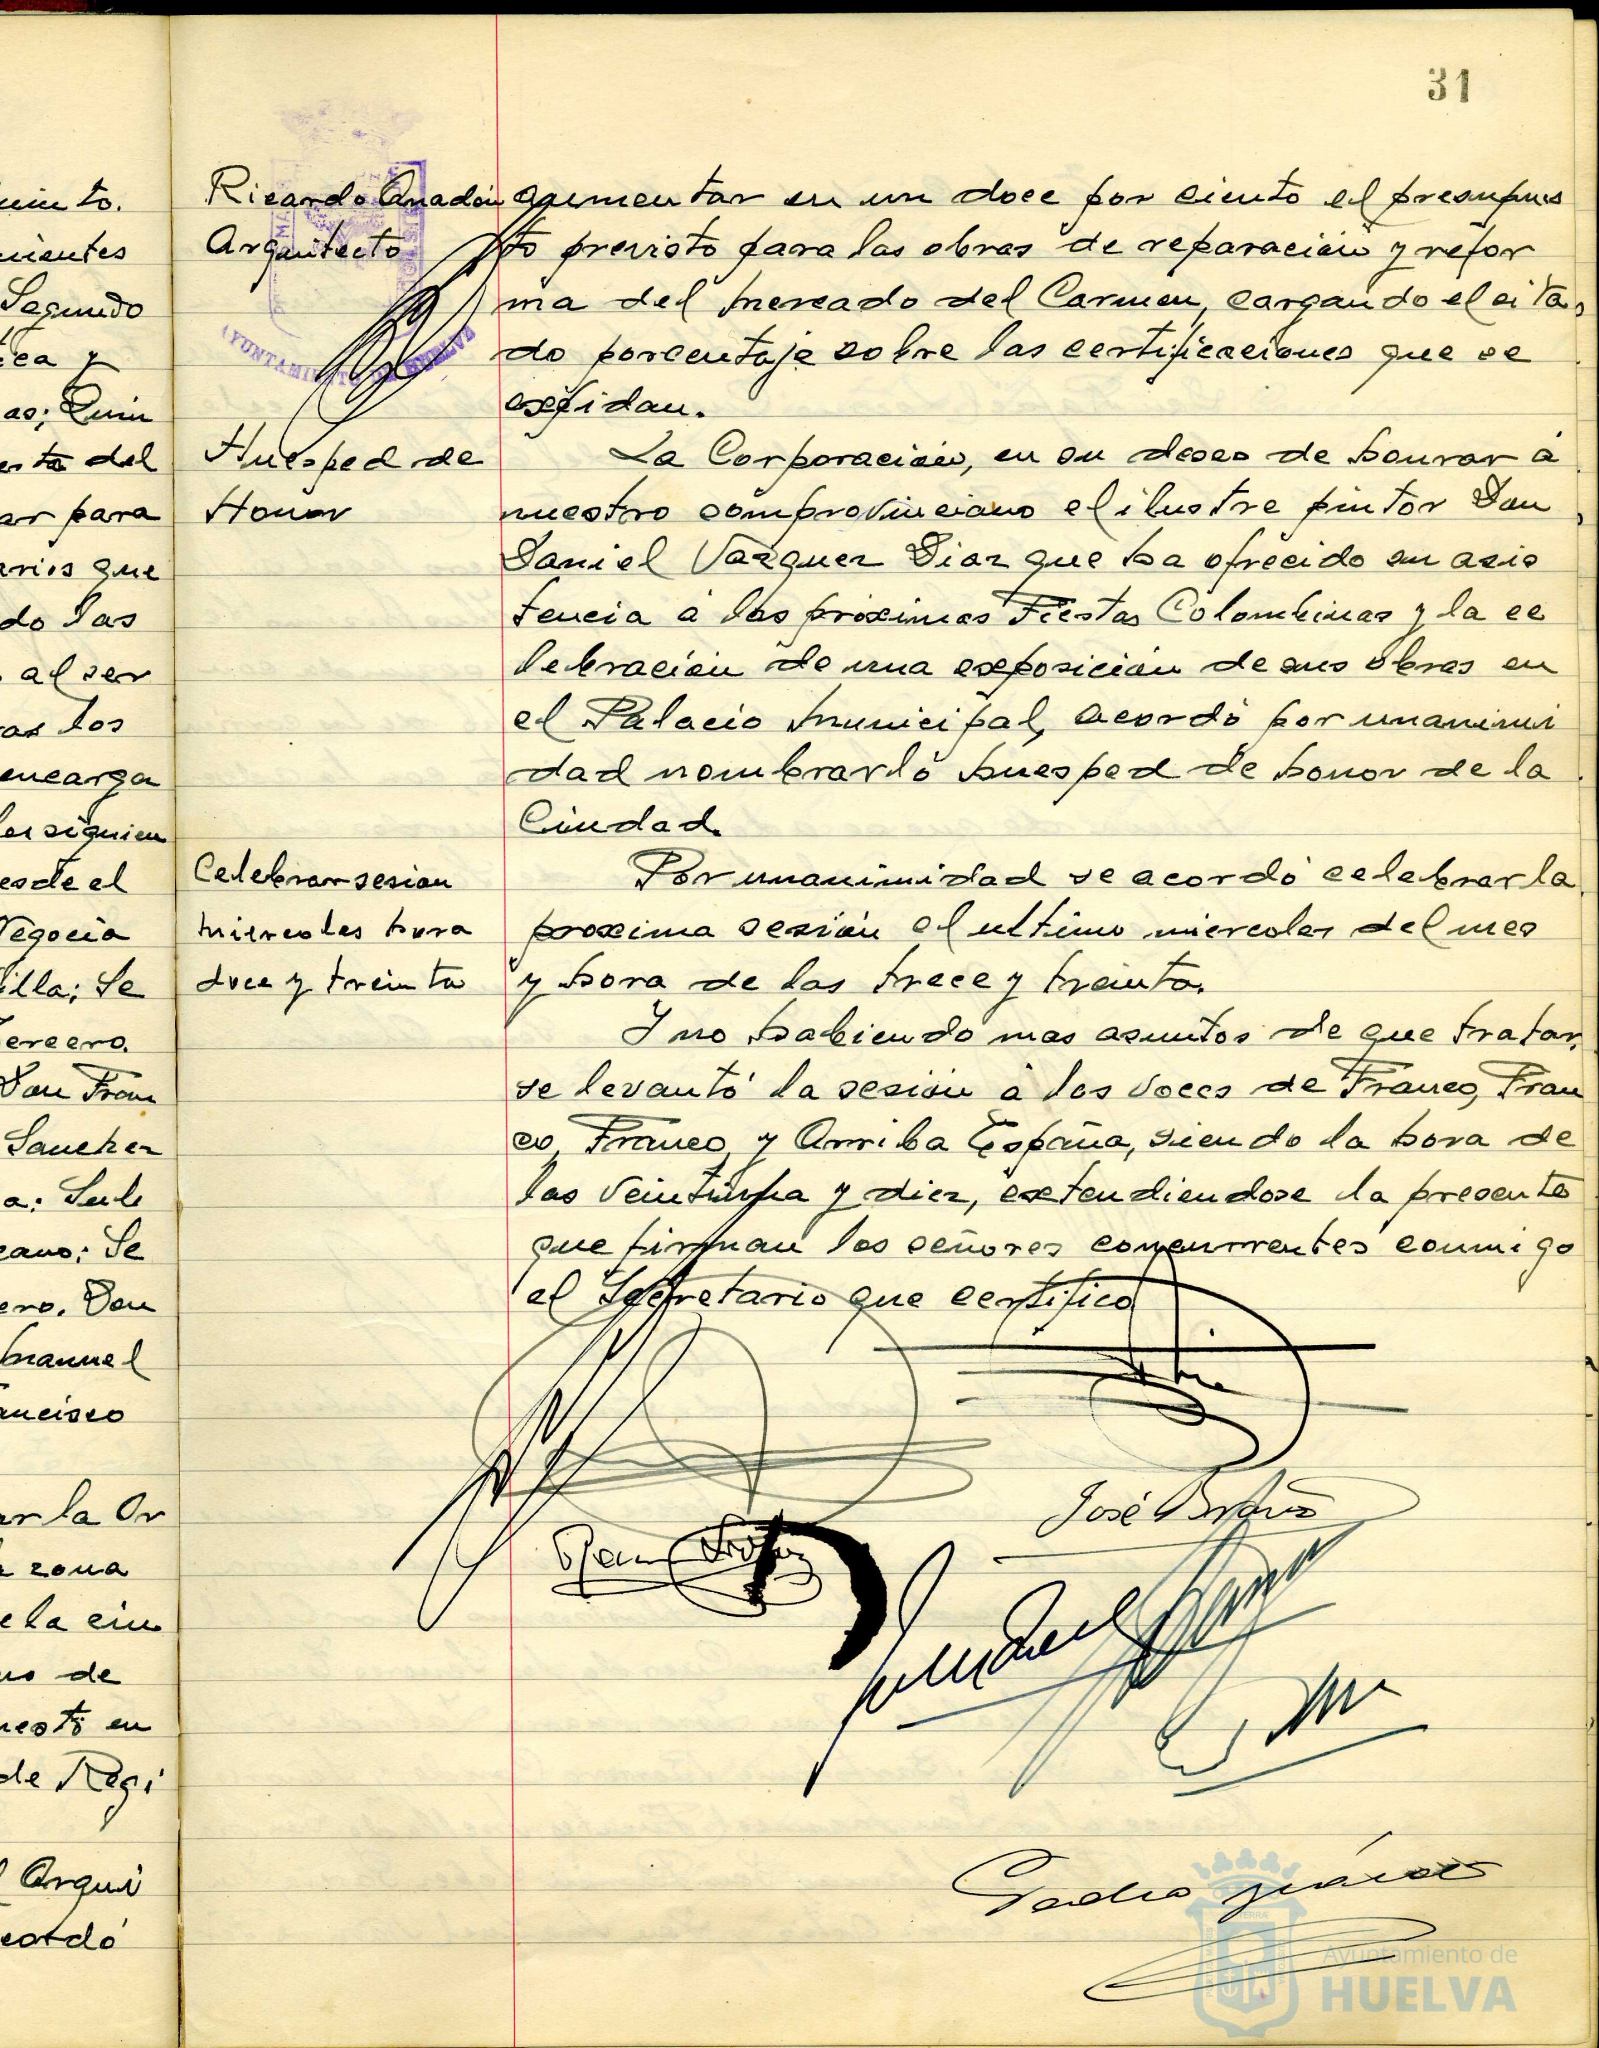 31
uiento.
nientes
Segundo
tea y
as; Quin
esta del
ar para
arios que
do las
al ser
ras los
encarga
los siguien
esde el
Negocia
illa; Se
Tercero.
Don Fran
Sanchez
a; Sub
cano; Se
ero. Don
Manuel
ancisco
ar la Or
zona
e la ciu
no de
uesto en
de Regi
Arqui
cordó
Ricardo Anadón
Arquitecto
AYUNTAMIENTO DE HUELVA
Huesped de
Honor
Celebrar sesion
miercoles hora
doce y treinta
aumentar en un doce por ciento el presupues
to previsto para las obras de reparación y refor
ma del Mercado del Carmen, cargando el cita
do porcentaje sobre las certificaciones que se
expidan.
La Corporación, en su deseo de honrar á
nuestro comprovinciano el ilustre pintor Don
Daniel Vazquez Diaz que ha ofrecido su asis
tencia á las próximas Fiestas Colombinas y la ce
lebración de una exposición de sus obras en
el Palacio Municipal, acordó por unanimi
dad nombrarlo huesped de honor de la
Ciudad.
Por unanimidad se acordó celebrar la
proxima sesión el ultimo miercoles del mes
y hora de las trece y treinta.
Y no habiendo mas asuntos de que tratar,
se levantó la sesión á los voces de Franco, Fran
co, Franco, y Arriba España, siendo la hora de
las veintiuna y diez, extendiendose la presente
que firman los señores concurrentes conmigo
el Secretario que certifico
José Bravo
Pedro
Ayuntamiento de
HUELVA